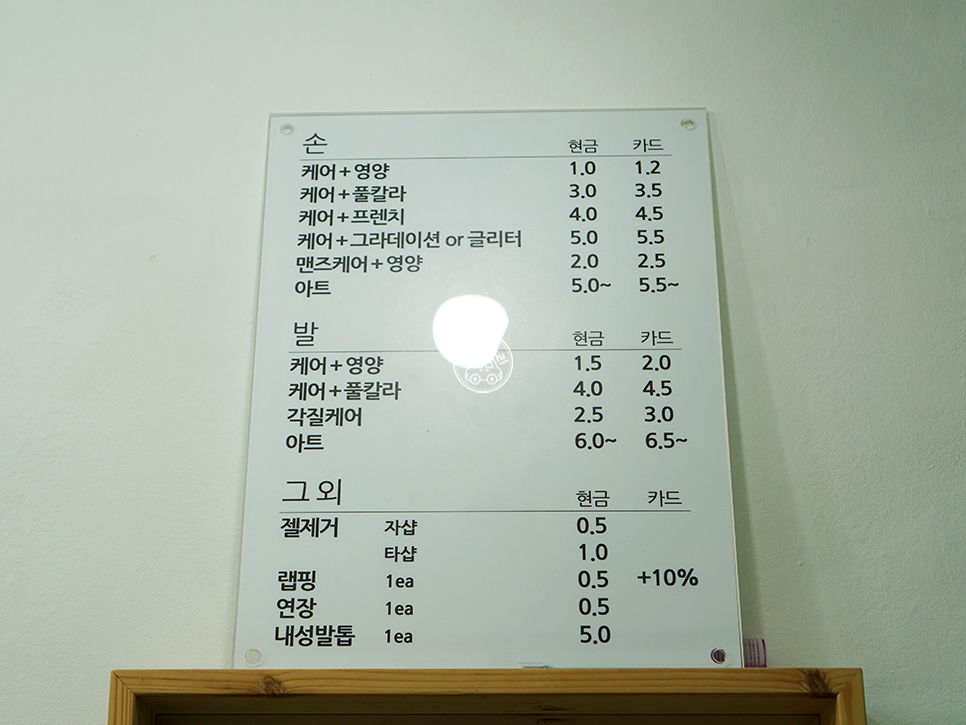 손 현금 카드
케어+영양 1.0 1.2
케어+풀칼라 3.0 3.5
케어+프렌치 4.0 4.5
케어+그라데이션 or 글리터 5.0 5.5
맨즈케어+영양 2.0 2.5
아트 5.0~ 5.5~
발 현금 카드
케어+영양 1.5 2.0
케어+풀칼라 4.0 4.5
각질케어 2.5 3.0
아트 6.0~ 6.5~
그 외 현금 카드
젤제거 자샵 0.5
타샵 1.0
랩핑 1ea 0.5 +10%
연장 1ea 0.5
내성발톱 1ea 5.0